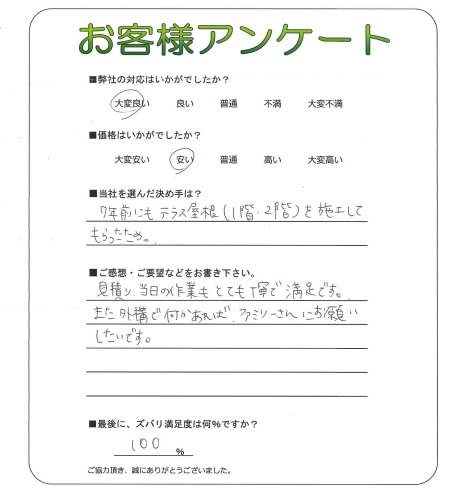 お客様アンケート
■弊社の対応はいかがでしたか？
大変良い 良い 普通 不満 大変不満
■価格はいかがでしたか？
大変安い 安い 普通 高い 大変高い
■当社を選んだ決め手は？
7年前にも テラス屋根(1階・2階)を施工して
もらったため。
■ご感想・ご要望などをお書き下さい。
見積り、当日の作業もとても丁寧で満足です。
また外構で何かあれば、ファミリーさんにお願い
したいです。
■最後に、ズバリ満足度は何％ですか？
100 ％
ご協力頂き、誠にありがとうございました。